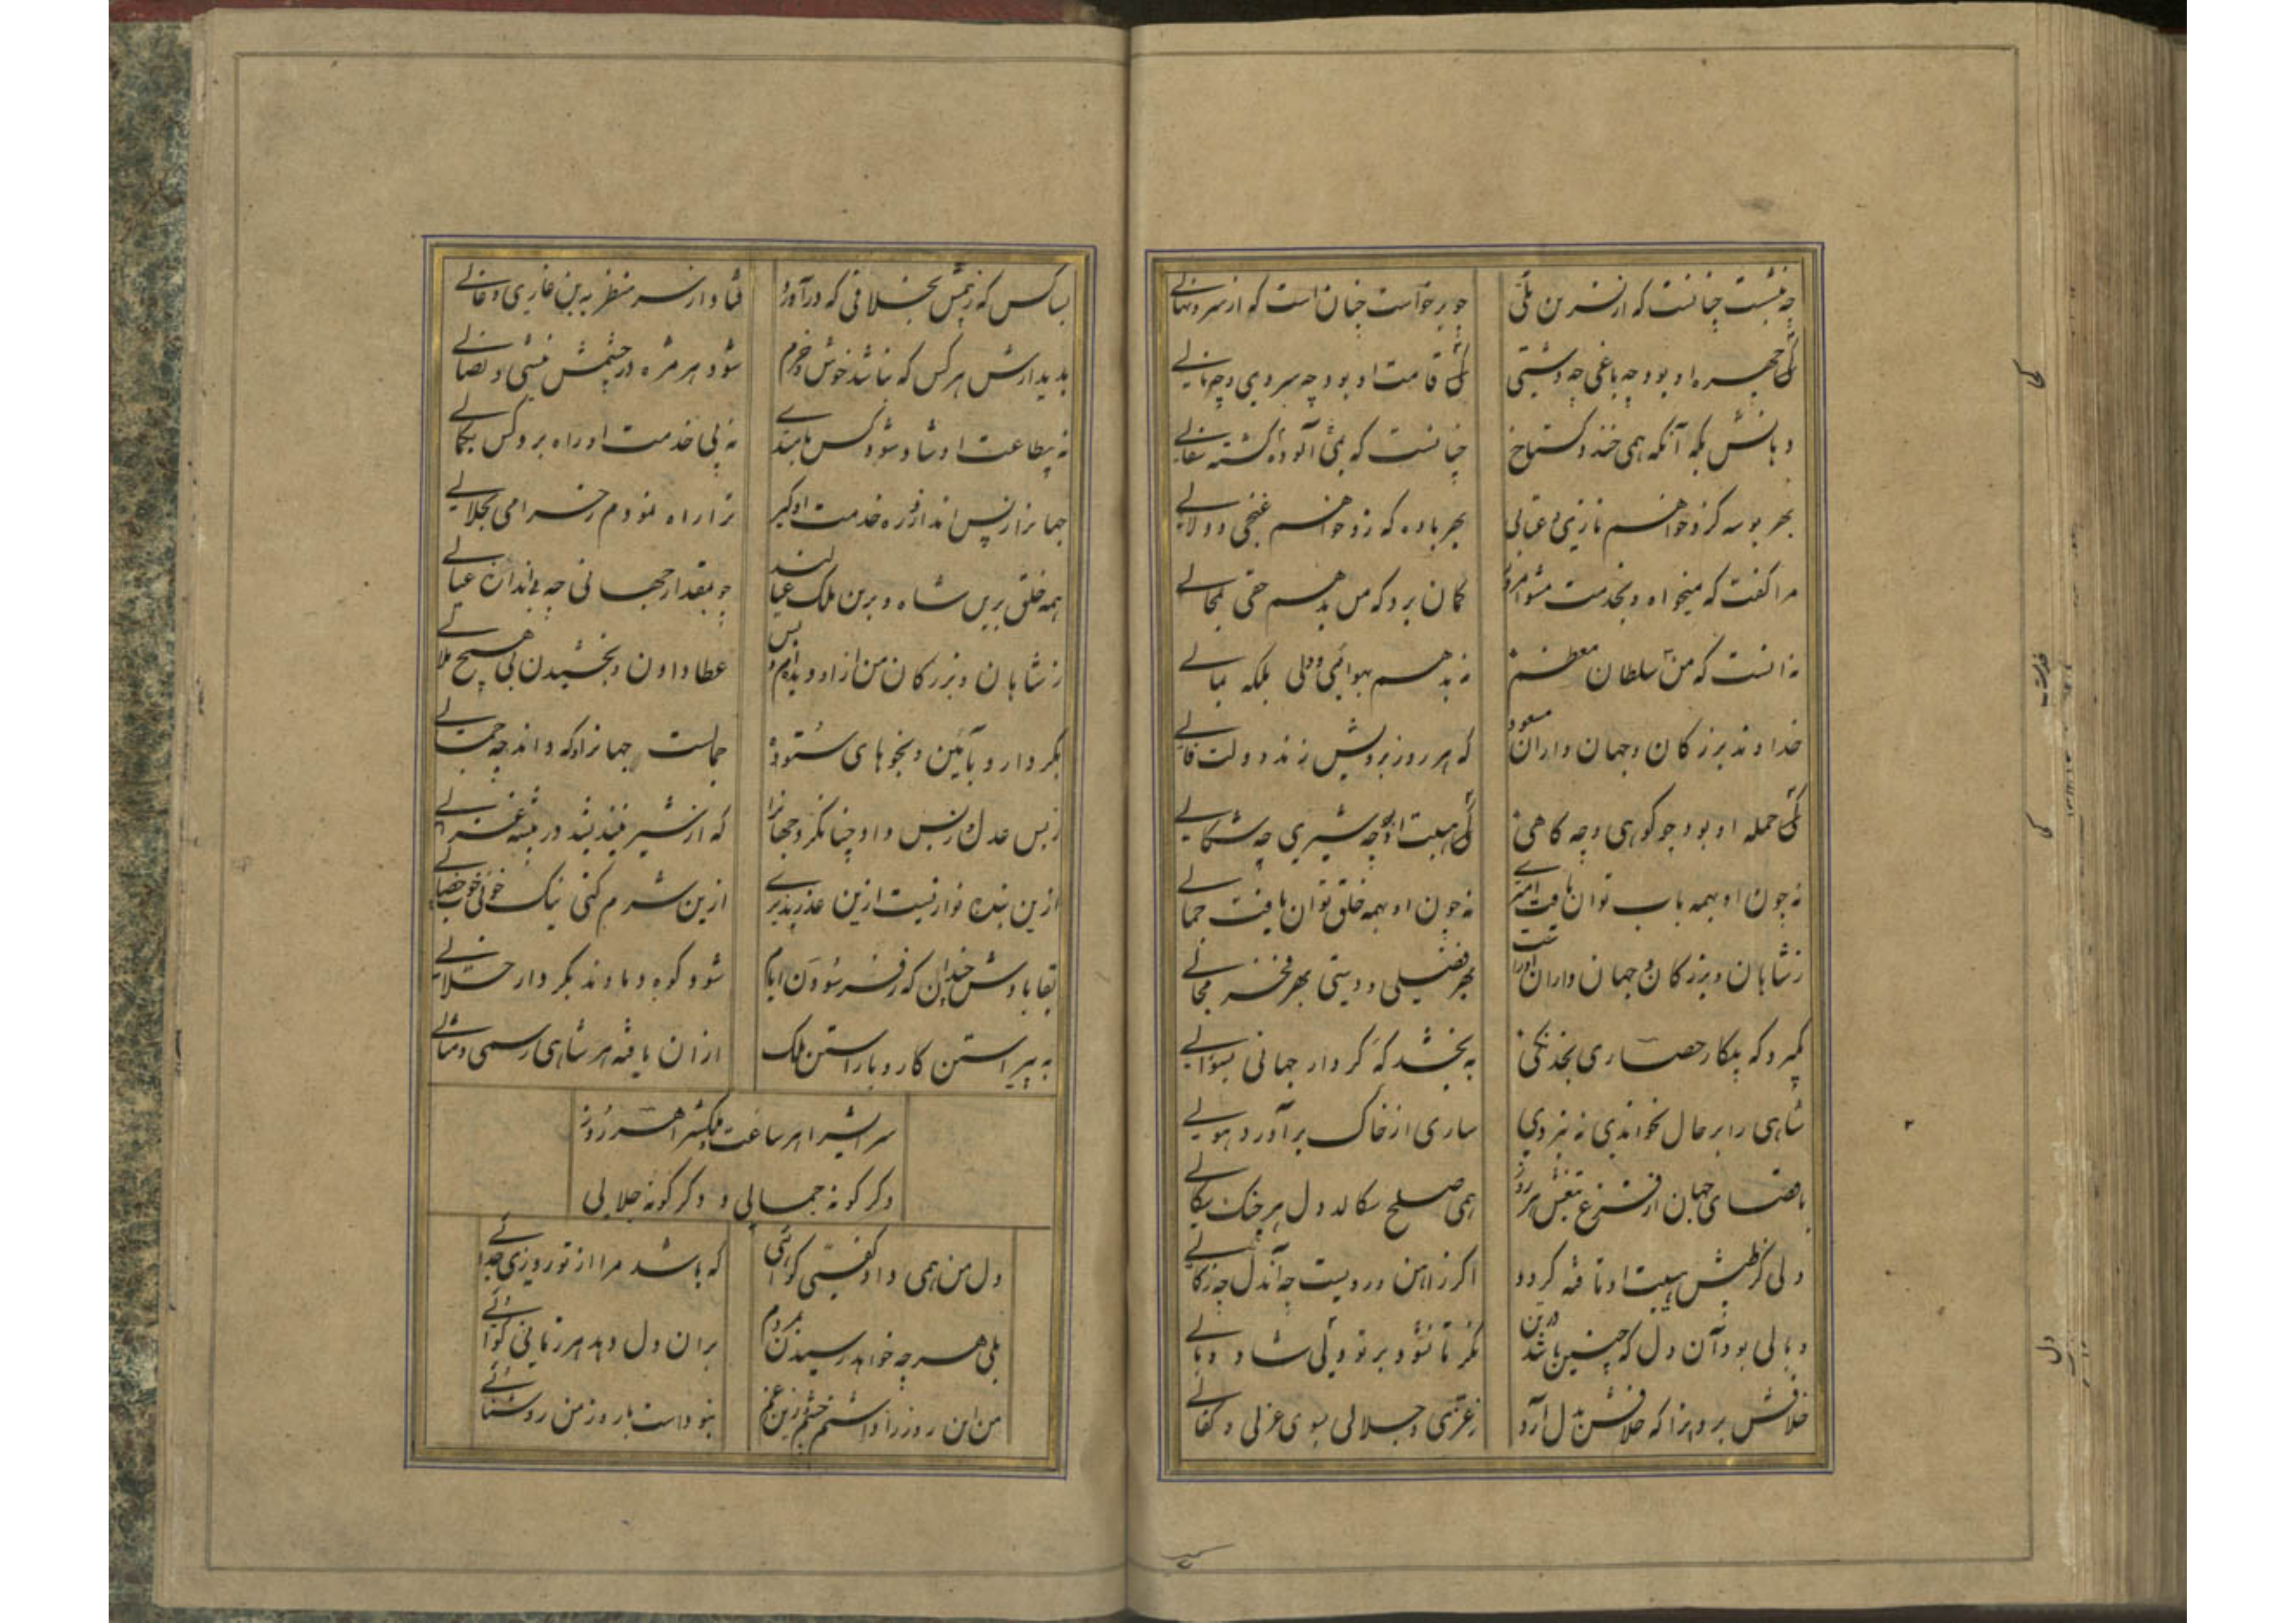 چه بنشست چنانست که از نسرن تلی
چو برخواست چنان است که از سرو نهالے
کی چهره او بود چه باغی چه دشتی
کی قامت او بود چه سروی و چه نالے
دهانش بکه آنکه همی خندد کستاخ
چنانست که بمی آلوده کشته سفالے
بهر بوسه کزو خواهم نازی و عتابی
بهر باده که زو خواهم غنجی و دلالے
مرا کفت که میخواه و بخدمت مشو امروز
کمان برد که من بدهم حقی بمحالے
ندانست که من سلطان معظم
ندهم بهوائی ودلی بلکه بمالے
خداوند بزرکان و جهان داران مسعود
که هر روز برویش زند دولت فالے
کی حمله او بود چو کوهی و چه کاهی
کی هیبت او چه شیری چه شکالے
نه چون او بهمه باب توان یافت امیرے
نه چون او بهمه خلق توان یافت حمالے
ز شاهان و بزرکان و جهان داران او راست
بهر فضلی و دستی بهر فخر مجالے
بکیرد که پیکار حصاری بخدنکی
به بخشد که کردار جهانی بسوالے
شاهی را بر حال نخواندی نه نبردی
ساری از خاک برآورد هوالے
باقصای جهان از فزع تیغش هر روز
همی صلح سکالد دل هر جنک سکالے
دلی کز تپش هیبت او تافته کردد
اکر ز آهن و رویست چه آندل چه زکالے
وبالی بود آن دل که چنین باشد در تن
نکر تا نشود بر تو دلی شاد وبالے
خلافش برد آنرا که خلافش بدل آرد
ز عزی و جلالی بسوی عزلی و نکالے
بسا کس که زیمش بخلافی که درآورد
فتاد از سر منظر به بن غاری و غالے
بدیدارش هر کس که نباشد خوش و خرم
شود هر مژه در چشمش نیشی و نصالے
نه بیطاعت او شاد شود کس بامیدے
نه بی خدمت او راه برد کس بکمالے
جهانرا ز پس اندازد ره خدمت او کیر
ترا راه نمودم خرامی بجلالے
همه خلق برین شاه و برین ملک عیالند
چو بمقدار جهانی چه باندازه عیالے
ز شاهان و بزرکان من ازاو دیدم و بس
عطا دادن و بخشیدن بی هیچ ملالے
بکردار و بآئین و بخوهای ستوده
جمالست جهانرا و که داند چه جمالے
ز بس عدل و ز بس داد چنان کرد جهانرا
که از شیر نیندیشد در بیشه غزالے
ازین بنده نوازیست ازین عذر پذیرے
ازین شرم کنی نیک خوئی خوب خصالے
بقا بادش چندان که ز فرسودن ایام
شود کوه دماوند بکردار خلالے
به پیراستن کار و باراستن ملک
از آن یافته هر شاهی رسمی و مثالے
سرایش را هر ساعت و ملکش را هر روز
دکر کونه جمالی و دکر کونه جلالی
دل من همی داد کفتی کوائی
که باشد مرا از تو روزی جدائے
بلی هر چه خواهد رسیدن بمردم
بران دل دهد هر زمانی کوائے
من این روز را داشتم چشم زین غم
نبوداست با روز من روشنائے